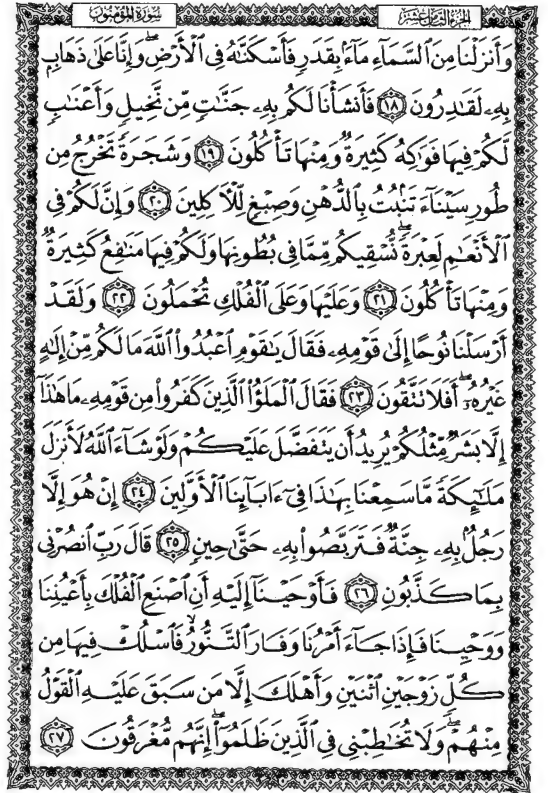 الجزء الثامن عشر
سورة المؤمنون
وَأَنزَلْنَا مِنَ ٱلسَّمَآءِ مَآءَۢ بِقَدَرٖ فَأَسْكَنَّٰهُ فِي ٱلْأَرْضِۖ وَإِنَّا عَلَىٰ ذَهَابِۭ
بِهِۦ لَقَٰدِرُونَ ١٨ فَأَنشَأْنَا لَكُم بِهِۦ جَنَّٰتٖ مِّن نَّخِيلٖ وَأَعْنَٰبٖ
لَّكُمْ فِيهَا فَوَٰكِهُ كَثِيرَةٞ وَمِنْهَا تَأْكُلُونَ ١٩ وَشَجَرَةٗ تَخْرُجُ مِن
طُورِ سَيْنَآءَ تَنۢبُتُ بِٱلدُّهْنِ وَصِبْغٖ لِّلْأٓكِلِينَ ٢٠ وَإِنَّ لَكُمْ فِي
ٱلْأَنْعَٰمِ لَعِبْرَةٗۖ نُّسْقِيكُم مِّمَّا فِي بُطُونِهَا وَلَكُمْ فِيهَا مَنَٰفِعُ كَثِيرَةٞ
وَمِنْهَا تَأْكُلُونَ ٢١ وَعَلَيْهَا وَعَلَى ٱلْفُلْكِ تُحْمَلُونَ ٢٢ وَلَقَدْ
أَرْسَلْنَا نُوحًا إِلَىٰ قَوْمِهِۦ فَقَالَ يَٰقَوْمِ ٱعْبُدُوا۟ ٱللَّهَ مَا لَكُم مِّنْ إِلَٰهٍ
غَيْرُهُۥٓۖ أَفَلَا تَتَّقُونَ ٢٣ فَقَالَ ٱلْمَلَؤُا۟ ٱلَّذِينَ كَفَرُوا۟ مِن قَوْمِهِۦ مَا هَٰذَآ
إِلَّا بَشَرٞ مِّثْلُكُمْ يُرِيدُ أَن يَتَفَضَّلَ عَلَيْكُمْ وَلَوْ شَآءَ ٱللَّهُ لَأَنزَلَ
مَلَٰٓئِكَةٗ مَّا سَمِعْنَا بِهَٰذَا فِيٓ ءَابَآئِنَا ٱلْأَوَّلِينَ ٢٤ إِنْ هُوَ إِلَّا
رَجُلُۢ بِهِۦ جِنَّةٞ فَتَرَبَّصُوا۟ بِهِۦ حَتَّىٰ حِينٖ ٢٥ قَالَ رَبِّ ٱنصُرْنِي
بِمَا كَذَّبُونِ ٢٦ فَأَوْحَيْنَآ إِلَيْهِ أَنِ ٱصْنَعِ ٱلْفُلْكَ بِأَعْيُنِنَا
وَوَحْيِنَا فَإِذَا جَآءَ أَمْرُنَا وَفَارَ ٱلتَّنُّورُۙ فَٱسْلُكْ فِيهَا مِن
كُلّٖ زَوْجَيْنِ ٱثْنَيْنِ وَأَهْلَكَ إِلَّا مَن سَبَقَ عَلَيْهِ ٱلْقَوْلُ
مِنْهُمْۖ وَلَا تُخَٰطِبْنِي فِي ٱلَّذِينَ ظَلَمُوٓا۟ۖ إِنَّهُم مُّغْرَقُونَ ٢٧